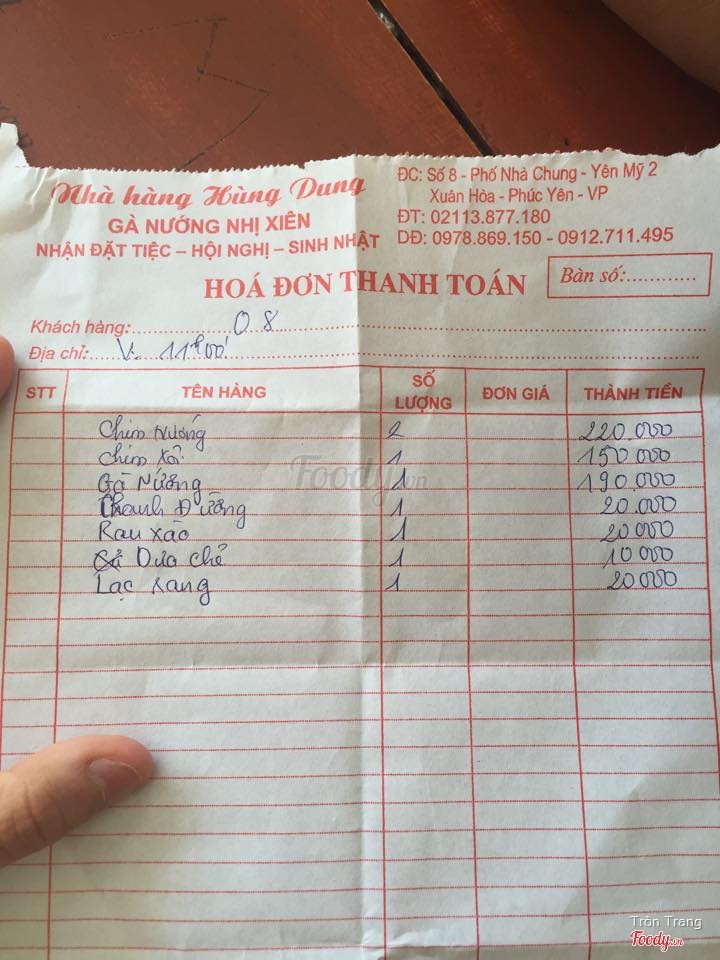 Nhà hàng Hùng Dung
GÀ NƯỚNG NHỊ XIÊN
NHẬN ĐẶT TIỆC – HỘI NGHỊ – SINH NHẬT
ĐC: Số 8 - Phố Nhà Chung - Yên Mỹ 2
Xuân Hòa - Phúc Yên - VP
ĐT: 02113.877.180
DĐ: 0978.869.150 - 0912.711.495
HOÁ ĐƠN THANH TOÁN
Bàn số:............
Khách hàng: 08
Địa chỉ: V. 11h00'
STT TÊN HÀNG SỐ LƯỢNG ĐƠN GIÁ THÀNH TIỀN
Chim nướng 2 220.000
Chim xôi 1 150.000
Gà Nướng 1 190.000
Đường 1 20.000
Rau xào 1 20.000
Dưa chẻ 1 10.000
Lạc rang 1 20.000
Foody.vn
Tròn Trang
Foody.vn